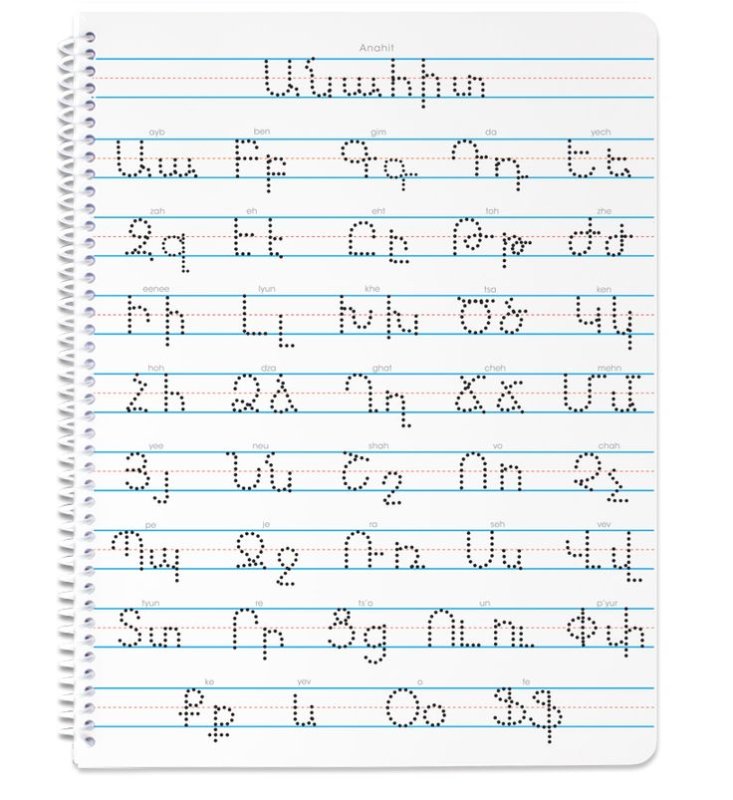 Anahit
Անահիտ
ayb ben gim da yech
Աա Բբ Գգ Դդ Եե
zah eh eht toh zhe
Զզ Էէ Ըը Թթ Ժժ
eenee lyun khe tsa ken
Իի Լլ Խխ Ծծ Կկ
hoh dza ghat cheh mehn
Հհ Ձձ Ղղ Ճճ Մմ
yee neu shah vo chah
Յյ Նն Շշ Ոո Չչ
pe je ra seh vev
Պպ Ջջ Ռռ Սս Վվ
tyun re ts'o un p'yur
Տտ Րր Ցց Ուու Փփ
ke yev o fe
Քք և Օօ Ֆֆ